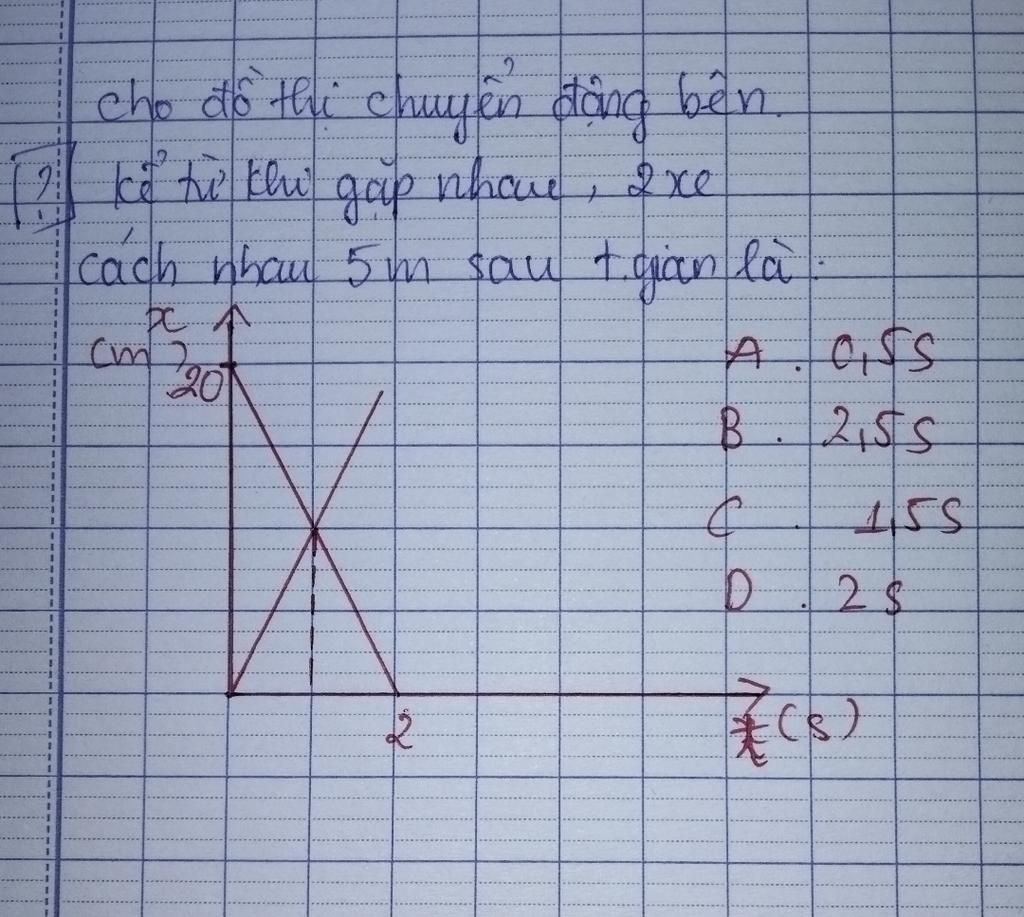 cho đồ thị chuyển động bên.
[?] kể từ khi gặp nhau, 2 xe
cách nhau 5m sau t.gian là:
x
(m)
20
2
t (s)
A. 0,5s
B. 2,5s
C. 1,5s
D. 2s